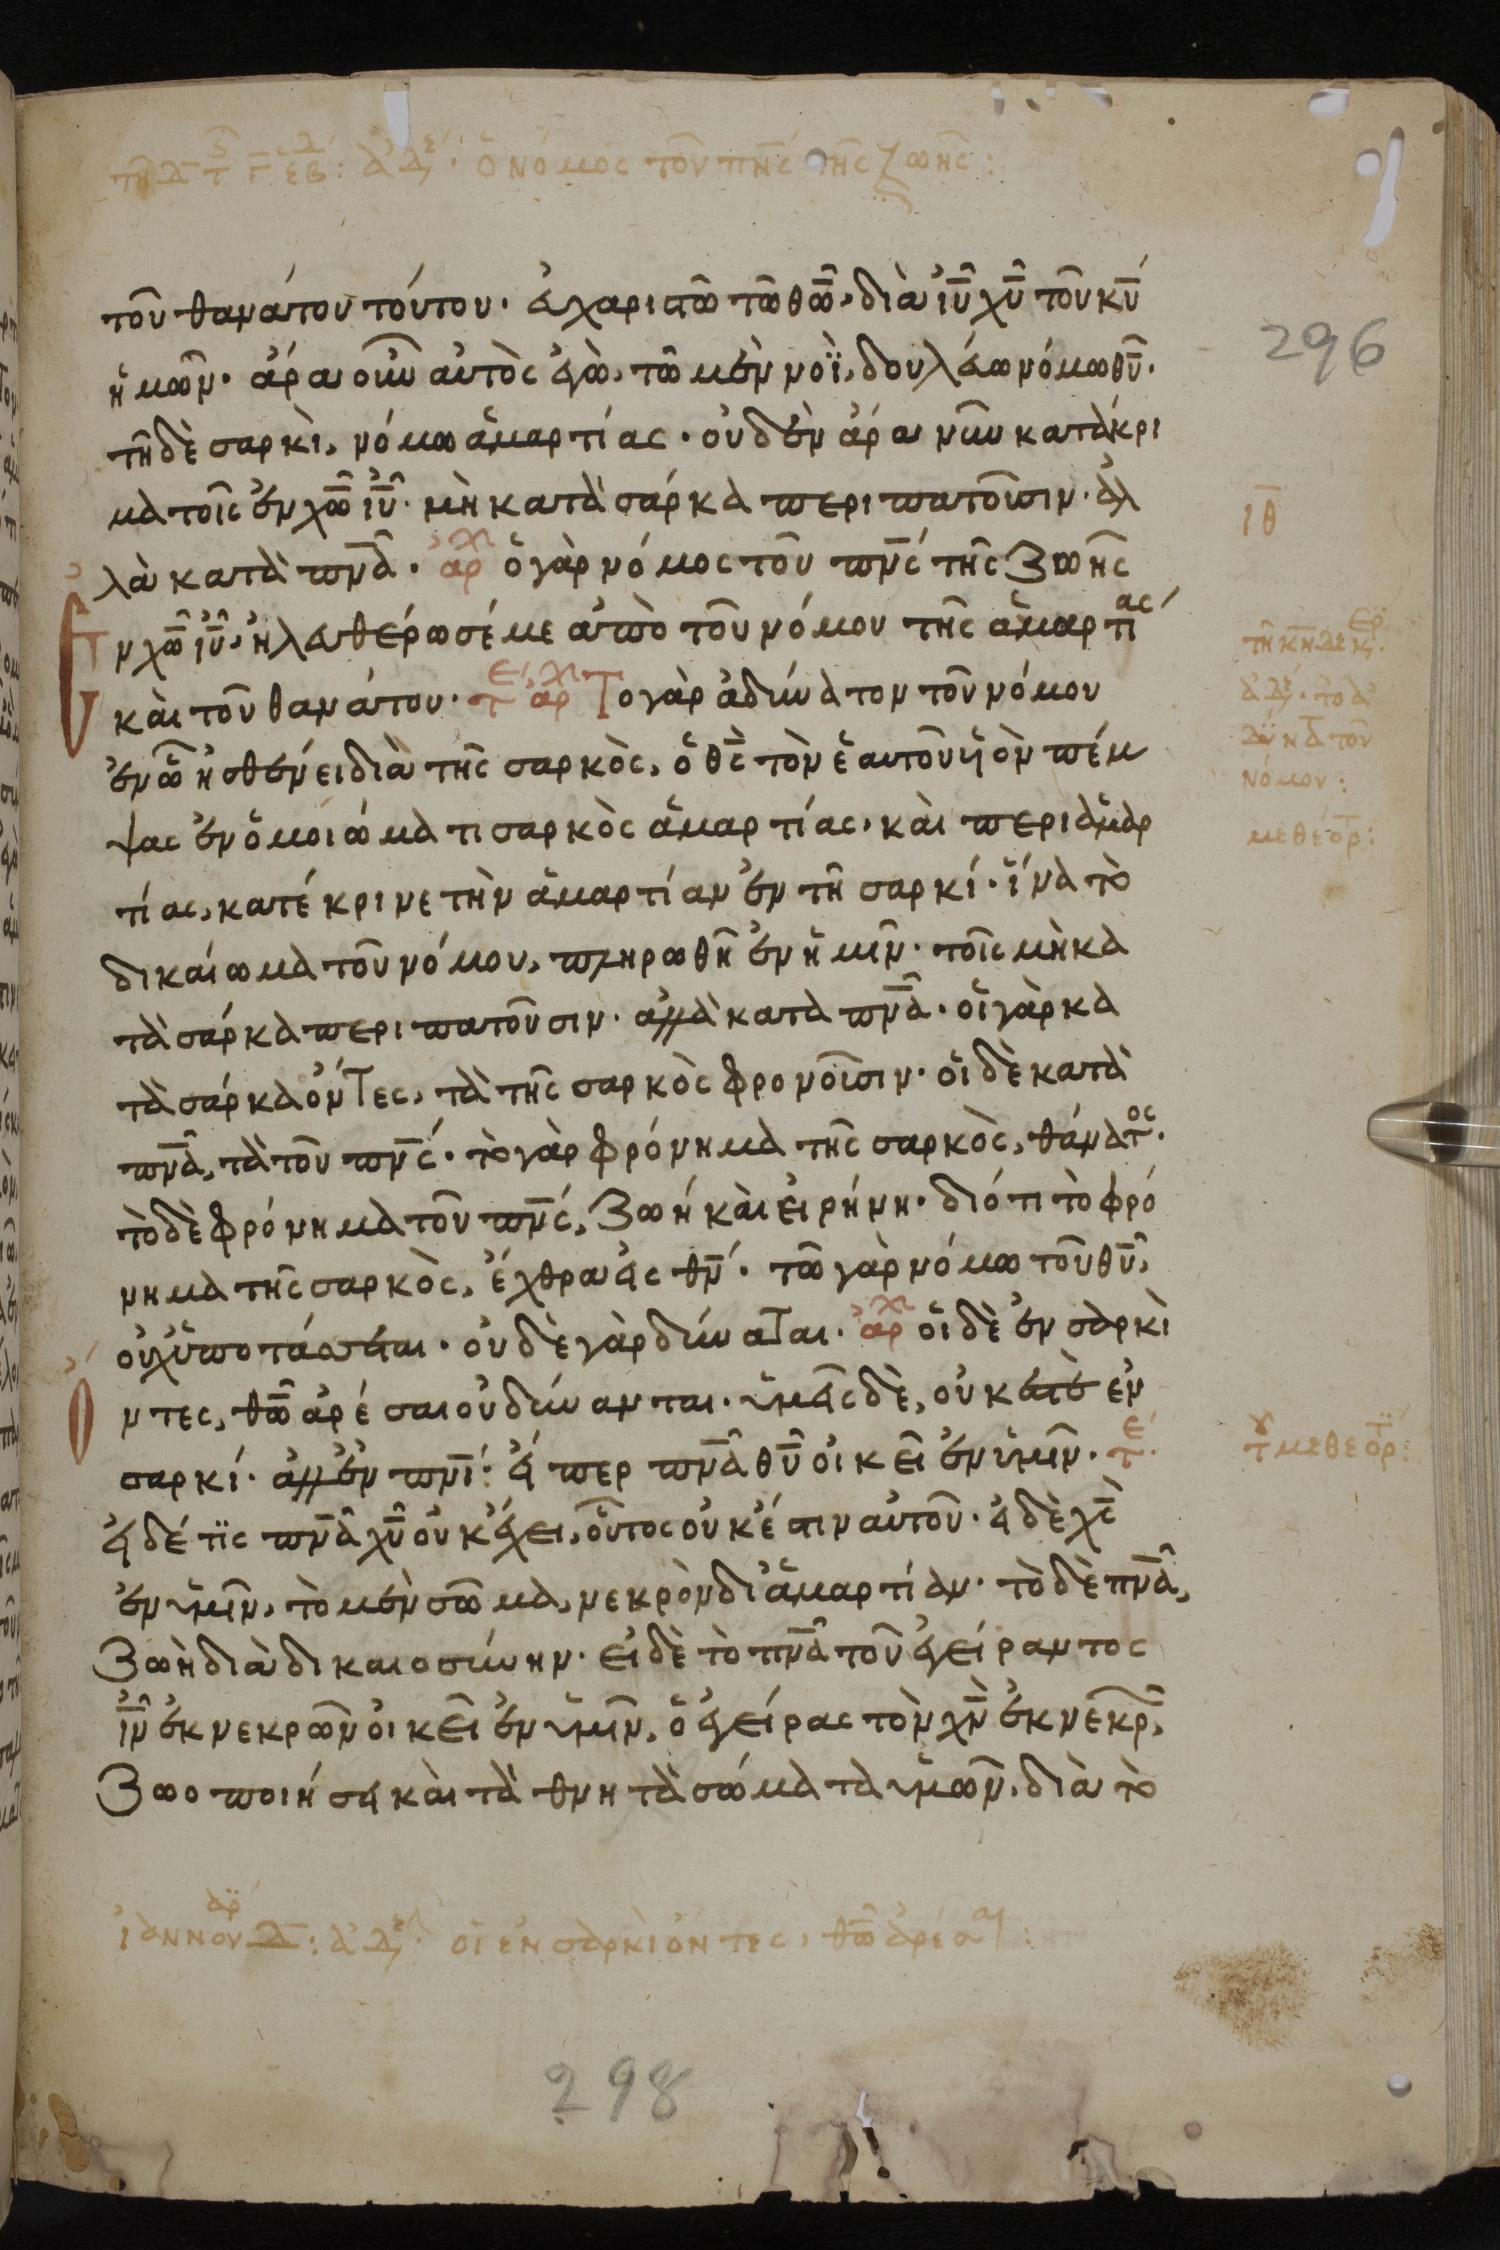 τοῦ θανάτου τούτου· εὐχαριστῶ τῶ θ̅ῶ̅, διὰ ἰ̅υ̅ χ̅υ̅ τοῦ κ̅υ̅
ἡμῶν· ἄρα οὖν αὐτὸς ἐγὼ, τῶ μὲν νοῒ, δουλεύω νόμω θ̅υ̅·
τῆ δὲ σαρκὶ, νόμω ἁμαρτίας· οὐδὲν ἄρα νῦν κατάκρι
μα τοῖς ἐν χ̅ῶ̅ ἰ̅υ̅· μὴ κατὰ σάρκα περιπατοῦσιν· ἀλ
λὰ κατὰ π̅ν̅α̅· ἀρχ ὁ γὰρ νόμος τοῦ π̅ν̅ς̅ τῆς ζωῆς
ἐν χ̅ῶ̅ ἰ̅υ̅, ἠλευθέρωσέ με ἀπὸ τοῦ νόμου τῆς ἁμαρτίας
καὶ τοῦ θανάτου· τε ἀρχ Το γὰρ ἀδύνατον τοῦ νόμου
ἐν ὧ ἠσθένει διὰ τῆς σαρκὸς, ὁ θ̅ς̅ τὸν ἑαυτοῦ υἱὸν πέμ
ψας ἐν ὁμοιώματι σαρκὸς ἁμαρτίας, καὶ περὶ ἁμαρ
τίας, κατέκρινε τὴν ἁμαρτίαν ἐν τῆ σαρκί· ἵνα τὸ
δικαίωμα τοῦ νόμου, πληρωθῆ ἐν ἡμῖν· τοῖς μὴ κα
τὰ σάρκα περιπατοῦσιν· ἀλλὰ κατὰ π̅ν̅α̅· οἱ γὰρ κα
τὰ σάρκα ὄντες, τὰ τῆς σαρκὸς φρονοῦσιν· οἱ δὲ κατὰ
π̅ν̅α̅, τὰ τοῦ π̅ν̅ς̅· τὸ γὰρ φρόνημα τῆς σαρκὸς, θάνατος·
τὸ δὲ φρόνημα τοῦ π̅ν̅ς̅, ζωή καὶ εἰρήνη· διότι τὸ φρό
νημα τῆς σαρκὸς, ἔχθρα εἰς θ̅ν̅· τῶ γὰρ νόμω τοῦ θ̅υ̅,
οὐχ ὑποτάσσεται· οὐδὲ γὰρ δύναται· ἀρχ οἱ δὲ ἐν σαρκὶ
ὄντες, θ̅ῶ̅ ἀρέσαι οὐ δύνανται· ὑμεῖς δὲ, οὐκ ἐστὲ ἐν
σαρκί· ἀλλ' ἐν π̅ν̅ι̅· εἴπερ π̅ν̅α̅ θ̅υ̅ οἰκεῖ ἐν ὑμῖν· τε
εἰ δέ τις π̅ν̅α̅ χ̅υ̅ οὐκ ἔχει, οὗτος οὐκ έστιν αὐτοῦ· εἰ δὲ χ̅ς̅
ἐν ὑμῖν, τὸ μὲν σῶμα, νεκρὸν δι' ἁμαρτίαν· τὸ δὲ π̅ν̅α̅,
ζωὴ διὰ δικαιοσύνην· εἰ δὲ τὸ π̅ν̅α̅ τοῦ ἐγείραντος
ἰ̅ν̅ ἐκ νεκρῶν οἰκεῖ ἐν ὑμῖν, ὁ ἐγείρας τὸν χ̅ν̅ ἐκ νεκρ,
ζωοποιήσει καὶ τὰ θνητὰ σώματα ὑμῶν, διὰ τὸ
ὁ νόμος τοῦ π̅ν̅ς̅ τῆς ζωῆς:
296
ιθ
νόμου:
οἱ ἐν σαρκὶ ὄντες, θ̅ῶ̅ ἀρέσαι:
298